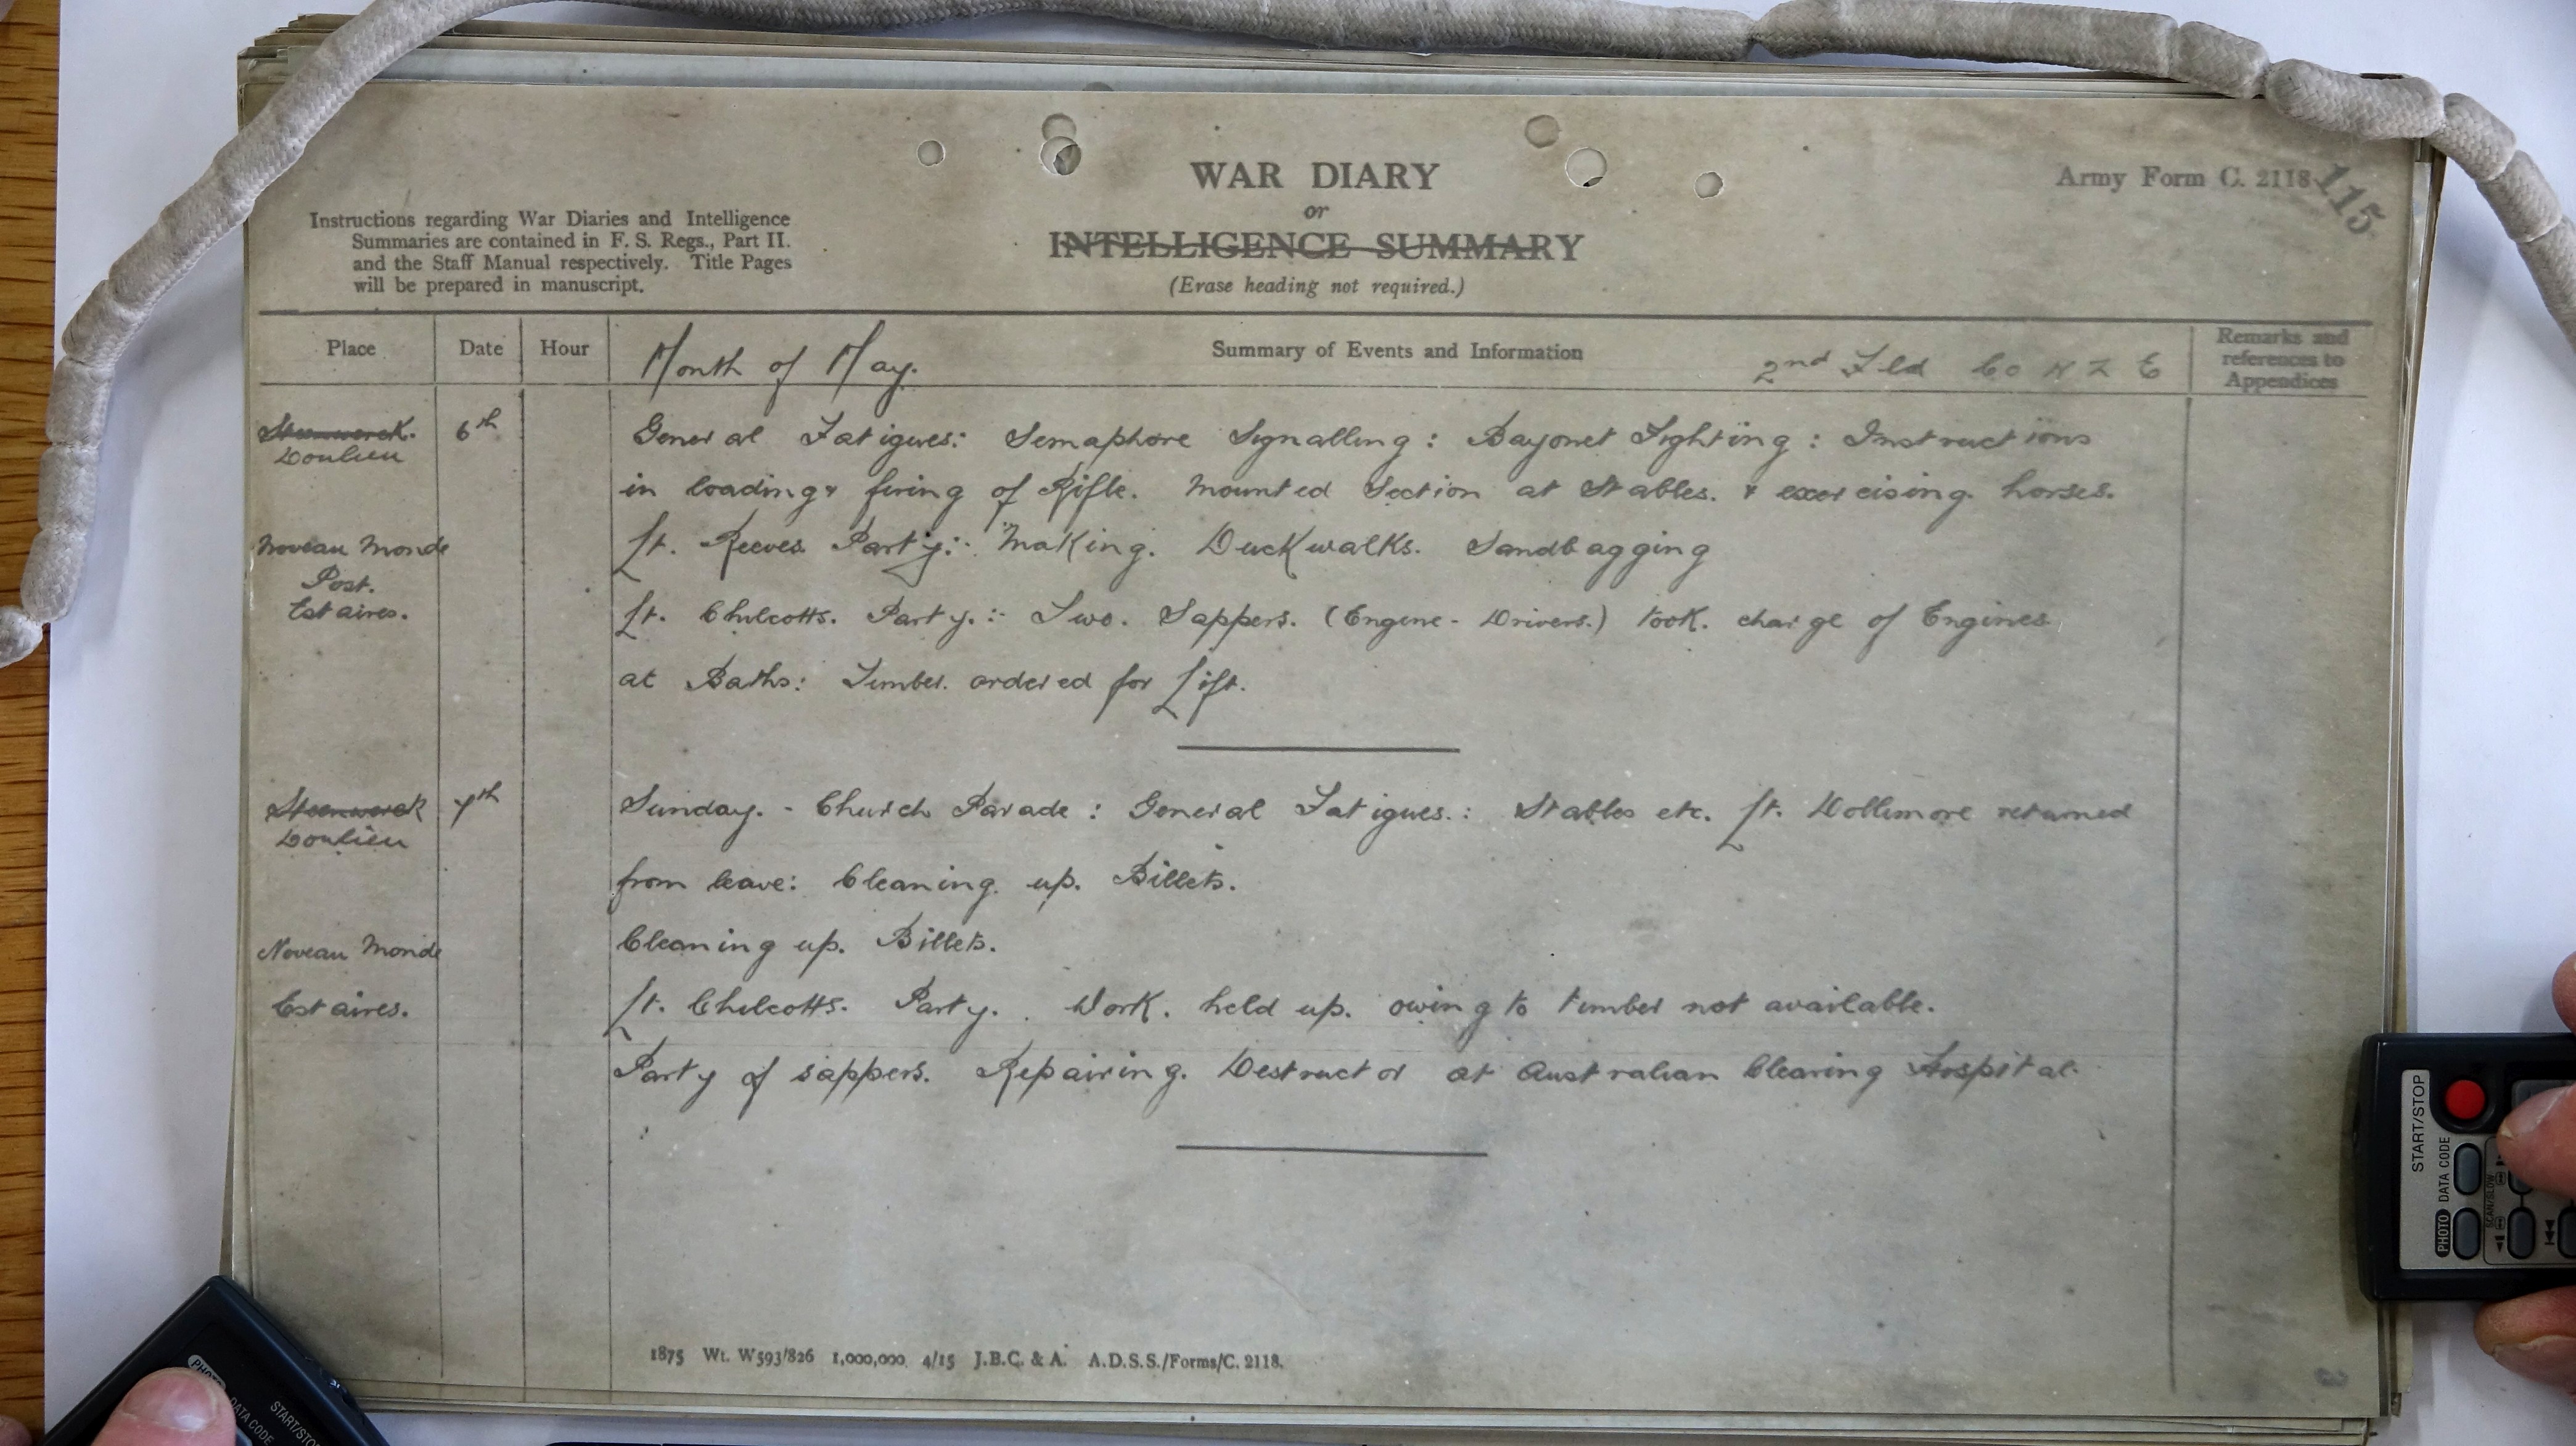 WAR DIARY
or
INTELLIGENCE SUMMARY
(Erase heading not required.)
Army Form C. 2118
115
Instructions regarding War Diaries and Intelligence
Summaries are contained in F. S. Regs., Part II.
and the Staff Manual respectively. Title Pages
will be prepared in manuscript.
Place Date Hour Month of May. Summary of Events and Information 2nd Fld Co N Z E Remarks and
references to
Appendices
Steenwerck. 6th General Fatigues: Semaphore Signalling: Bayonet Fighting: Instructions
Doulieu
in loading & firing of Rifle. Mounted Section at Stables. & exercising horses.
Noveau Monde Lt. Reeves Party:- Making. Duckwalks. Sandbagging
Post.
Estaires. Lt. Chilcotts. Party.:- Two. Sappers. (Engine-Drivers.) took. charge of Engines
at Baths: Timber. ordered for Lift.
Steenwerck 7th Sunday. - Church Parade: General Fatigues.: Stables etc. Lt. Dollimore returned
Doulieu
from leave: Cleaning. up. Billets.
Noveau Monde Cleaning up. Billets.
Estaires. Lt. Chilcotts. Party. . Work. held up. owing to timber not available.
Party of sappers. Repairing. Destructor at Australian Clearing Hospital.
1875 Wt. W593/826 1,000,000 4/15 J.B.C. & A. A.D.S.S./Forms/C. 2118.
START/STOP
PHOTO DATA CODE
SCAN/SLOW
PHOTO DATA CODE
START/STOP